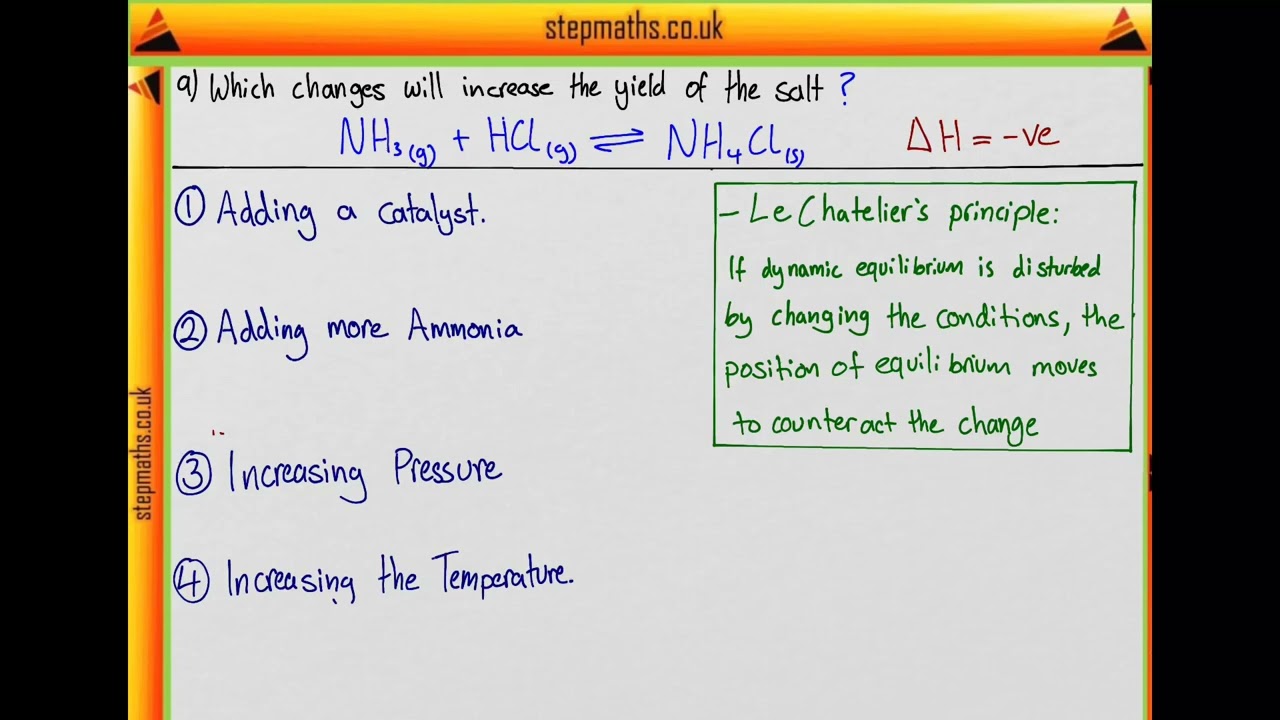 stepmaths.co.uk
a) Which changes will increase the yield of the salt ?
NH₃(g) + HCl(g) ⇌ NH₄Cl(s) ΔH = -ve
① Adding a catalyst.
② Adding more Ammonia
③ Increasing Pressure
④ Increasing the Temperature.
- Le Chatelier's principle:
If dynamic equilibrium is disturbed
by changing the conditions, the
position of equilibrium moves
to counteract the change
stepmaths.co.uk